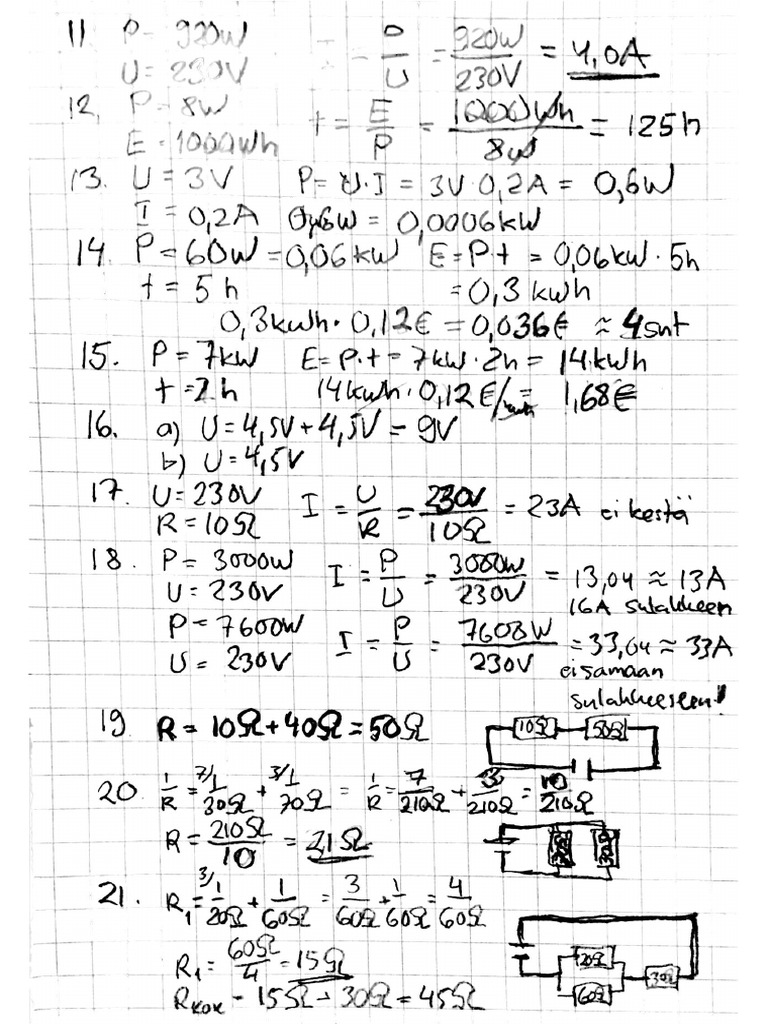 11 P = 920W P/U = 920W/230V = 4,0A
U = 230V
12, P = 8W t = E/P = 1000Wh/8W = 125h
E = 1000Wh
13. U = 3V P = U·I = 3V·0,2A = 0,6W
I = 0,2A 0,6W = 0,0006kW
14. P = 60W = 0,06kW E = P·t = 0,06kW · 5h
t = 5h = 0,3 kWh
0,3kWh · 0,12€ = 0,036€ ≈ 4snt
15. P = 7kW E = P·t = 7kW·2h = 14kWh
t = 2h 14kWh·0,12€/kWh = 1,68€
16. a) U = 4,5V + 4,5V = 9V
b) U = 4,5V
17. U = 230V I = U/R = 230V/10Ω = 23A ei kestä
R = 10Ω
18. P = 3000W I = P/U = 3000W/230V = 13,04 ≈ 13A
U = 230V 16A sulakkeen
P = 7600W I = P/U = 7600W/230V = 33,04 ≈ 33A
U = 230V ei samaan
sulakkeseen!
19 R = 10Ω + 40Ω = 50Ω 10Ω 50Ω
20. 1/R = 7/1/30Ω + 3/1/70Ω = 1/R = 7/210Ω + 3/210Ω = 10/210Ω
R = 210Ω/10 = 21Ω
21. R₁ = 3/1/20Ω + 1/60Ω = 3/60Ω + 1/60Ω = 4/60Ω
R₁ = 60Ω/4 = 15Ω 20Ω 30Ω
Rkok = 15Ω + 30Ω = 45Ω 60Ω